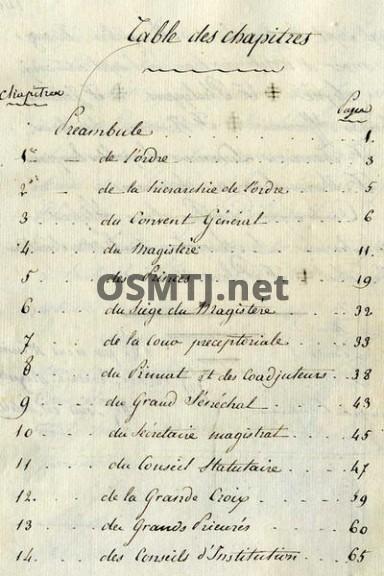 Table des chapitres
chapitres
Pages
Préambule 1
1er de l'ordre 3
2me de la hierarchie de l'ordre 5
3 du Convent Général 6
4 du Magistère 11
5 des Princes 19
OSMTJ.net
6 du Siège du Magistère 32
7 de la Cour préceptoriale 33
8 du Primat et des Coadjuteurs 38
9 du Grand Sénéchal 43
10 du Secretaire magistral 45
11 du Conseil Statutaire 47
12 de la Grande Croix 59
13 des Grands Prieurés 60
14 des Conseils d'Institution 65